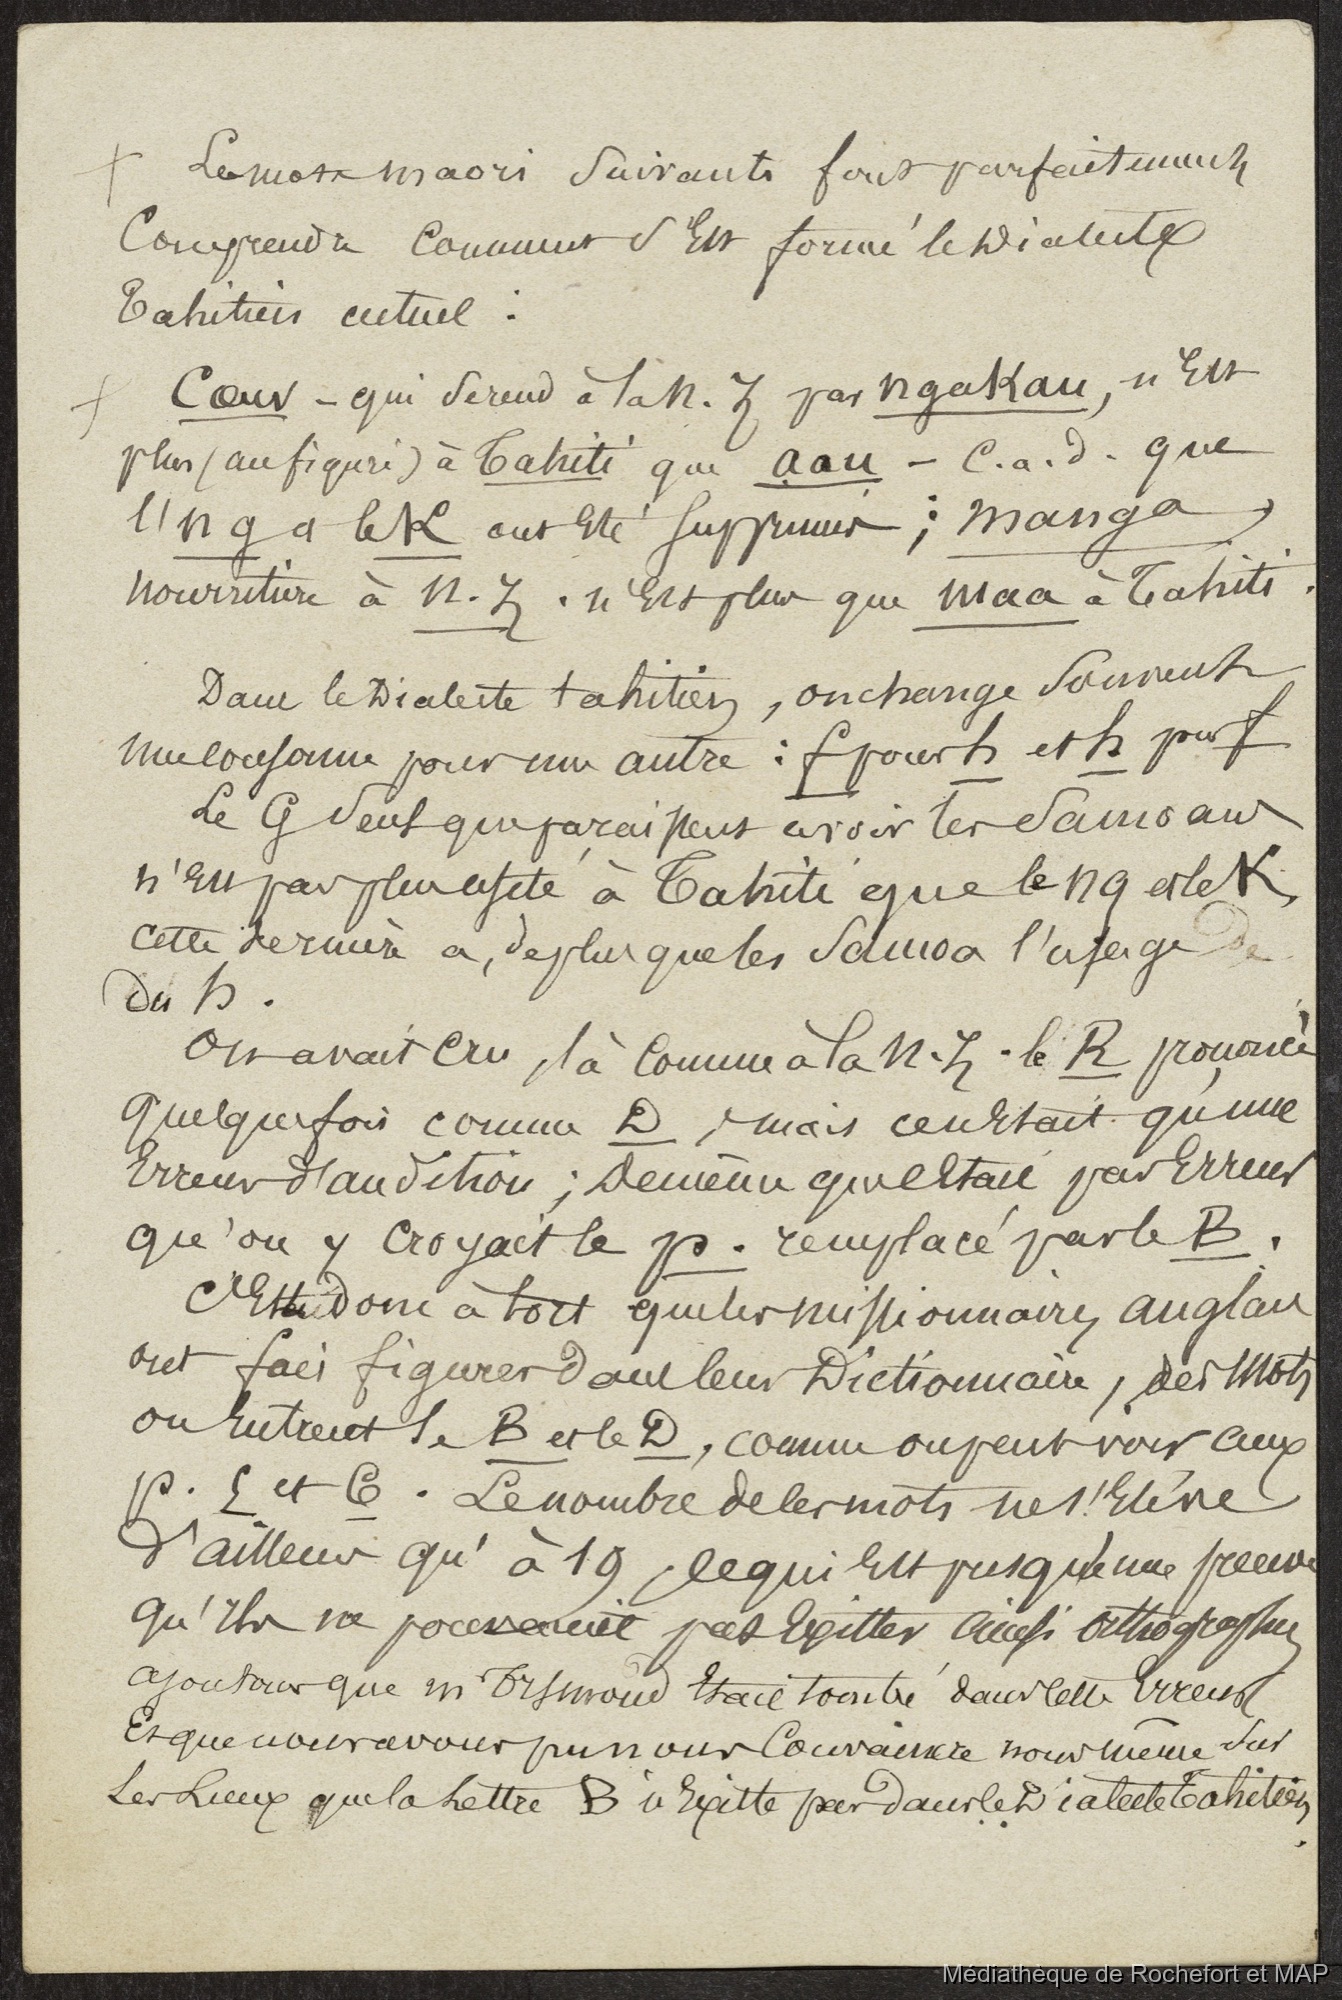 + Les mots maori suivants font parfaitement
Comprendre comment s'Est formé le Dialecte
Tahitien actuel :
+ Cœur - qui se rend à la N. Z par ngakau, n'Est
plus (au figuré) à Tahiti que aau - C.a.d. que
l'ng et le K ont Eté supprimés ; manga,
nourriture à N. Z. n'Est plus que maa à Tahiti.
Dans le Dialecte tahitien, on change Souvent
une consonne pour une autre : f pour h et h pour f
Le G seul que paraissent avoir les Samoans
n'Est pas plus usité à Tahiti que le ng et le K,
cette dernière a, de plus que les Samoa l'usage de
du h.
On avait cru, là comme à la N. Z. le R prononcé
quelquefois comme D, mais ce n'Etait qu'une
Erreur d'audition ; de même que c'Etait par Erreur
qu'on y croyait le p. remplacé par le B.
C'Est donc à tort que les missionnaires anglais
ont fait figurer dans leur Dictionnaire, des mots
où Entrent le B et le D, comme on peut voir aux
p. 5 et 6. Le nombre de ces mots ne s'Elève
d'ailleurs qu'à 19, ce qui Est presqu'une preuve
qu'ils ne pouvaient pas Exister ainsi orthographiés
ajoutons que m était tombé dans cette Erreur
Et que nous avons pu nous Convaincre nous même sur
Les Lieux que la Lettre B n'Existe pas dans le Dialecte Tahitien.
Médiathèque de Rochefort et MAP